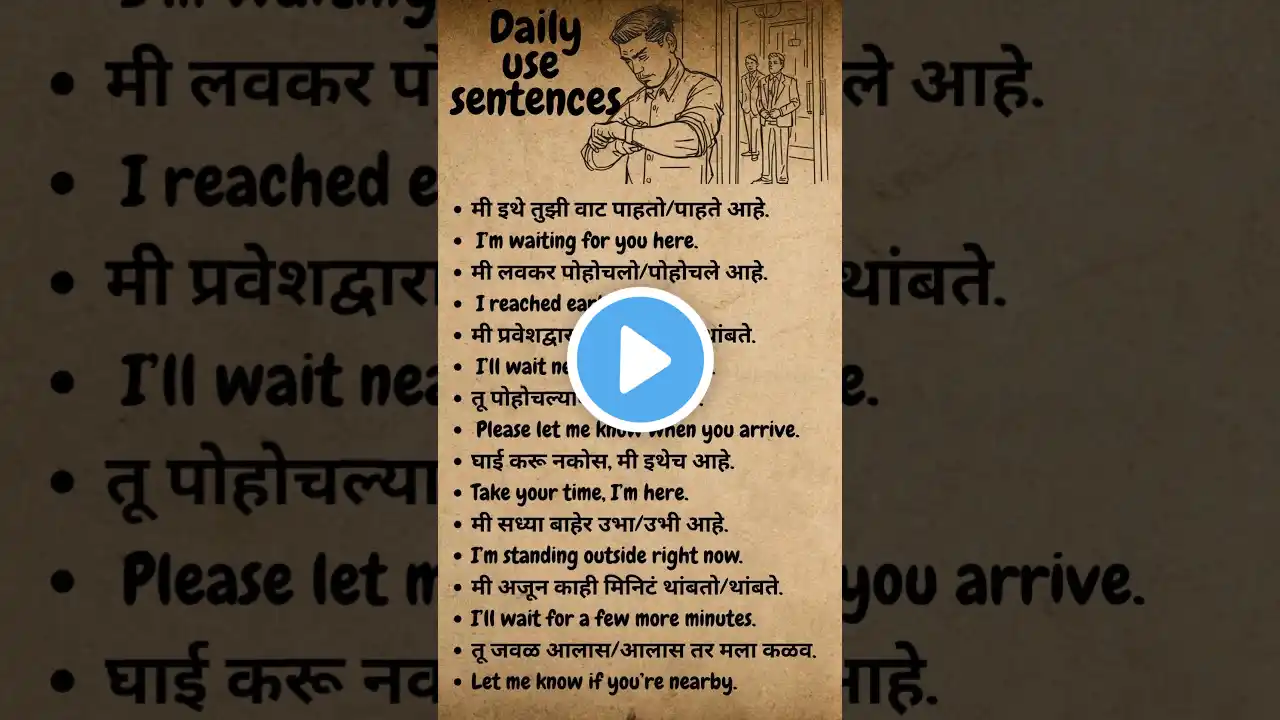 Daily
use
sentences
• मी इथे तुझी वाट पाहतो/पाहते आहे.
• I'm waiting for you here.
• मी लवकर पोहोचलो/पोहोचले आहे.
• I reached
• मी
• I'll wait
• तू
• Please let me know when you arrive.
• घाई करू नकोस, मी इथेच आहे.
• Take your time, I'm here.
• मी सध्या बाहेर उभा/उभी आहे.
• I'm standing outside right now.
• मी अजून काही मिनिटं थांबतो/थांबते.
• I'll wait for a few more minutes.
• तू जवळ आलास/आलास तर मला कळव.
• Let me know if you're nearby.